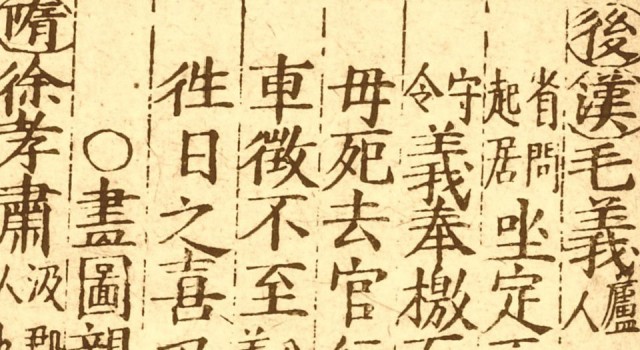 後漢毛義廬人
省問起居坐定
守令義奉檄
毋死去官
車徴不至
徃日之喜
○盡圖
隋徐孝肅汲郡人